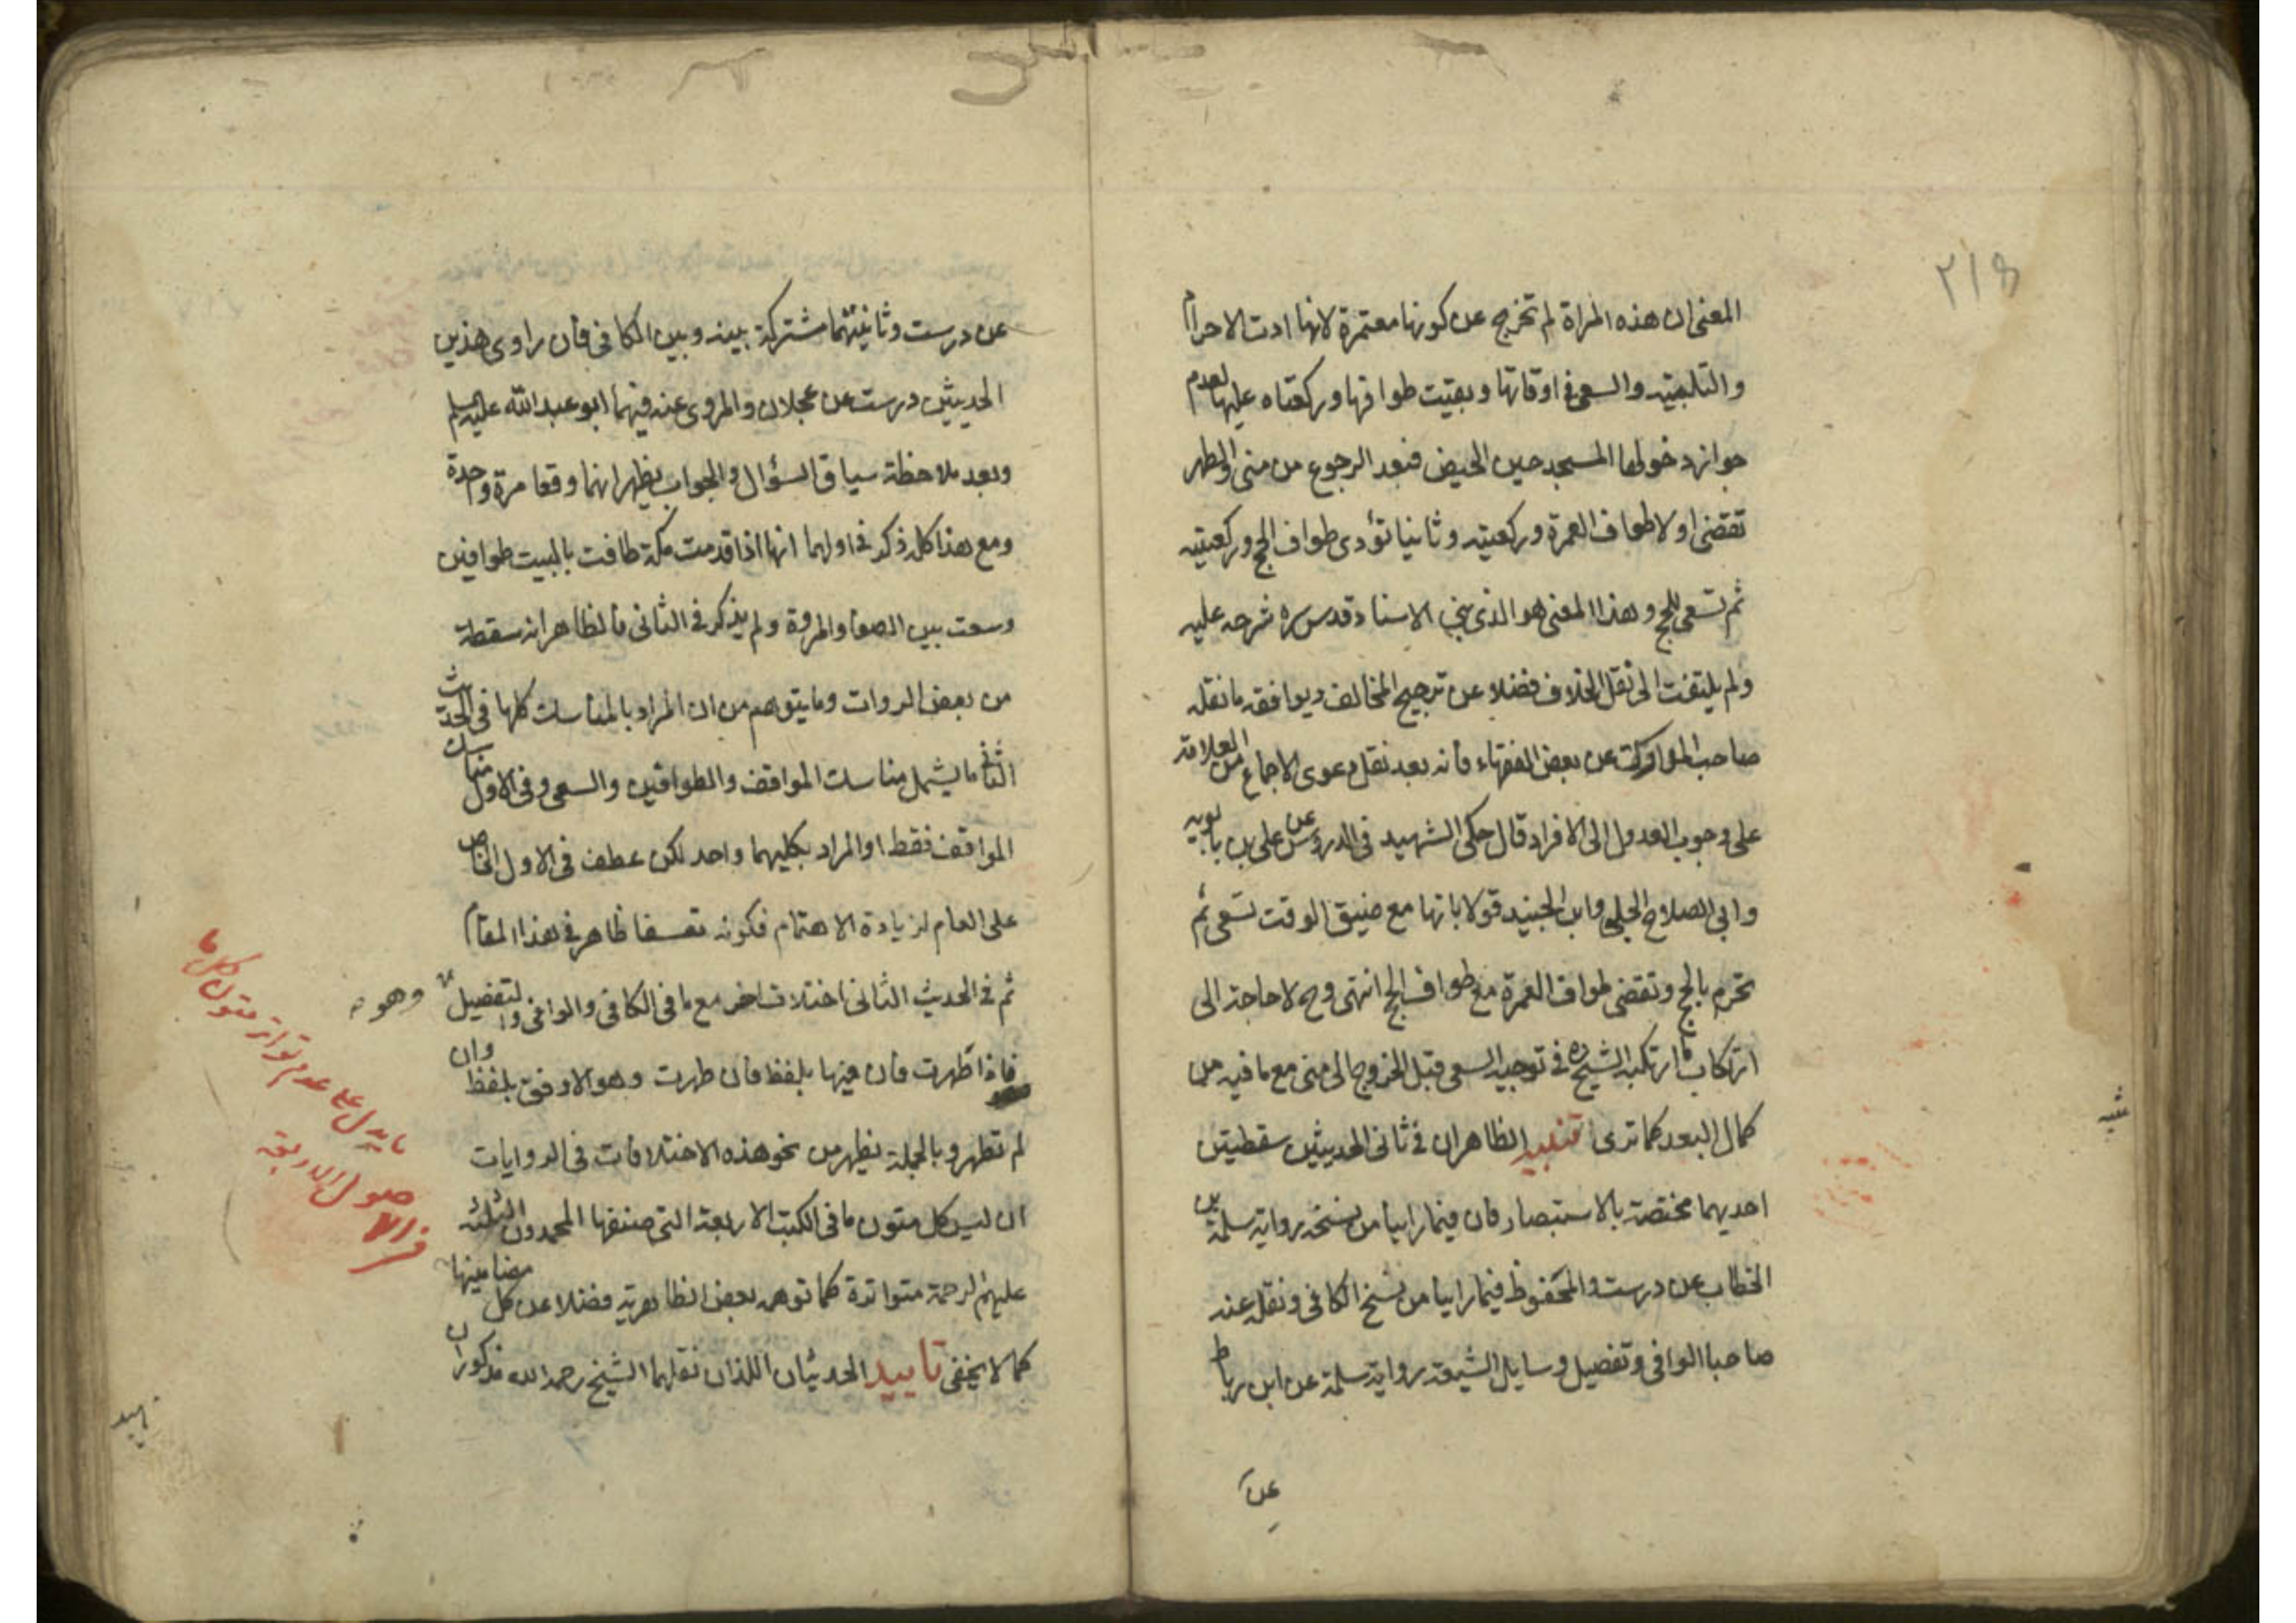 ٢١٨
المعنى ان هذه المراة لم تخرج عن كونها معتمرة لانها ادت الاحرام
والتلبيته والسعى فى اوقاتها وبقيت طوافها وركعتاه عليها لعدم
جواز دخولها المسجد حين الحيض فبعد الرجوع من منى والطهر
تقضى اولا طواف العمرة وركعتيه وثانيا تؤدى طواف الحج وركعتيه
ثم تسعى للحج وهذا المعنى هو الذى بنى الاستاد قدس سره شرحه عليه
ولم يلتفت الى نقل الخلاف فضلا عن ترجيح المخالف ويوافقه ما نقله
صاحب المدارك عن بعض الفقهاء فانه بعد نقل دعوى الاجماع من العلامة
على وجوب العدول الى الافراد قال حكى الشهيد فى الدروس عن على بن بابويه
وابى الصلاح الحلبى وابن الجنيد قولا بانها مع ضيق الوقت تسعى ثم
تحرم بالحج وتقضى طواف العمرة مع طواف الحج انتهى وح لا حاجة الى
ارتكاب ما ارتكبه الشيخ ره فى توجيه السعى قبل الخروج الى منى مع ما فيه من
كمال البعد كما ترى تنبيه الظاهر ان فى ثانى الحديثين سقطتين
احديهما مختصة بالاستبصار فان فيما راينا من نسخه رواية سلمة بن
الخطاب عن درست والمحفوظ فيما راينا من نسخ الكافى ونقله عنه
صاحبا الوافى وتفصيل وسايل الشيعة رواية سلمة عن ابن رباط
عن
عن درست وثانيتهما مشتركة بينه وبين الكافى فان راوى هذين
الحديثين درست عن عجلان والمروى عنه فيهما ابو عبد الله عليه السلم
وبعد ملاحظة سياق السؤال والجواب يظهر انهما وقعا مرة واحدة
ومع هذا كله ذكر فى اولهما انها اذا قدمت مكة طافت بالبيت طوافين
وسعت بين الصفا والمروة ولم يذكر فى الثانى فالظاهر انه سقط
من بعض الروات وما يتوهم من ان المراد بالمناسك كلها فى الحديث
الثانى ما يشمل مناسك المواقف والطوافين والسعى وفى الاول مناسك
المواقف فقط او المراد بكليهما واحد لكن عطف فى الاول الخاص
على العام لزيادة الاهتمام فكونه تعسفا ظاهر فى هذا المقام
ثم فى الحديث الثانى اختلاف اخر مع ما فى الكافى والوافى والتفصيل
وهو
فاذا طهرت فان فيها بلفظ فان طهرت وهو الاوفق بلفظ وان
لم تطهر وبالجملة يظهر من نحو هذه الاختلافات فى الروايات
ان ليس كل متون ما فى الكتب الاربعة التى صنفها المحمدون الثلثة
عليهم الرحمة متواترة كما توهمه بعض الظاهرية فضلا عن كل مضامينها
كما لا يخفى تاييد الحديثان اللذان نقلهما الشيخ رحمه الله مذكوران
ما يدل على عدم تواتر متون كل ما
فى الاصول الاربعة